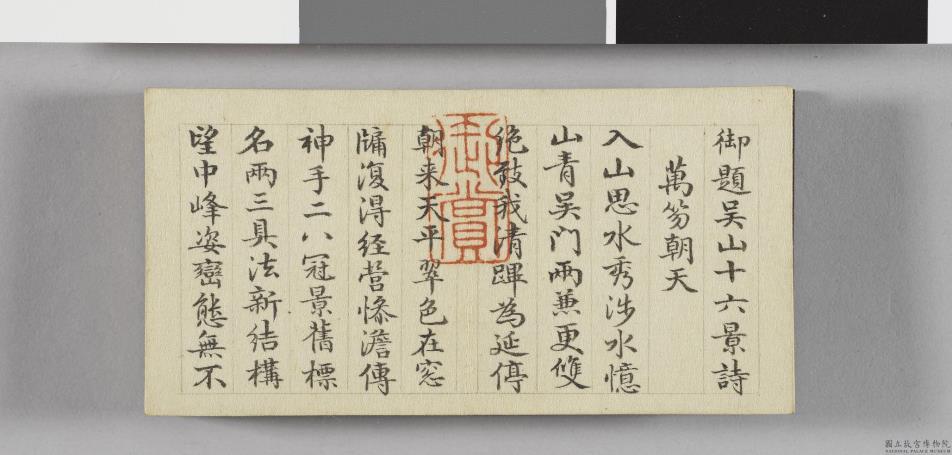 御題吳山十六景詩
萬笏朝天
入山思水秀涉水憶
山青吳門兩兼更雙
絶致我清蹕為延停
朝来天平翠色在窓
牖復得経營惨澹傳
神手二八冠景舊標
名兩三具法新結構
望中峰姿巒態無不
御賞
國立故宮博物院
NATIONAL PALACE MUSEUM